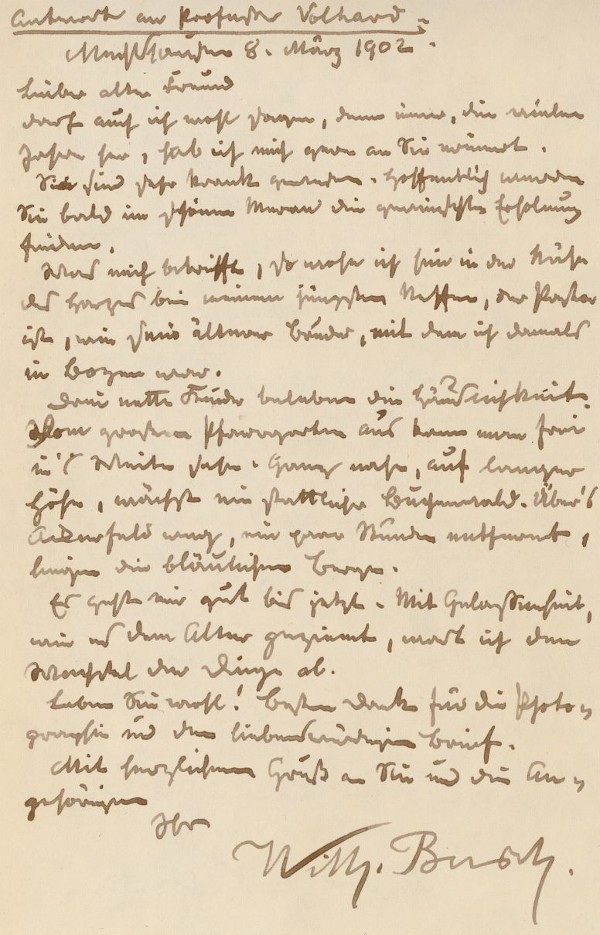 Antwort an Professor Volhard.
Mechtshausen 8. März 1902.
Lieber alter Freund
darf auch ich wohl sagen, denn immer, die vielen
Jahre her, hab ich mich gern an Sie erinnert.
Sie sind sehr krank gewesen. Hoffentlich werden
Sie bald im schönen Meran die gewünschte Erholung
finden.
Was mich betrifft, so wohn ich hier in der Nähe
des Harzes bei meinem jüngsten Neffen, der Pastor
ist, wie sein älterer Bruder, mit dem ich damals
in Bozen war.
Drei nette Kinder beleben die Häuslichkeit.
Vom großen Pfarrgarten aus kann man frei
in's Weite sehn. Ganz nahe, auf langer
Höhe, wächst ein stattlicher Buchenwald. Über's
Ackerfeld weg, ein paar Stunden entfernt,
liegen die bläulichen Berge.
Es geht mir gut bis jetzt. Mit Gelassenheit,
wie es dem Alter geziemt, wart ich den
Wechsel der Dinge ab.
Leben Sie wohl! Besten Dank für die Photo=
graphie und den liebenswürdigen Brief.
Mit herzlichem Gruß an Sie und die An=
gehörigen
Ihr
Wilh. Busch.